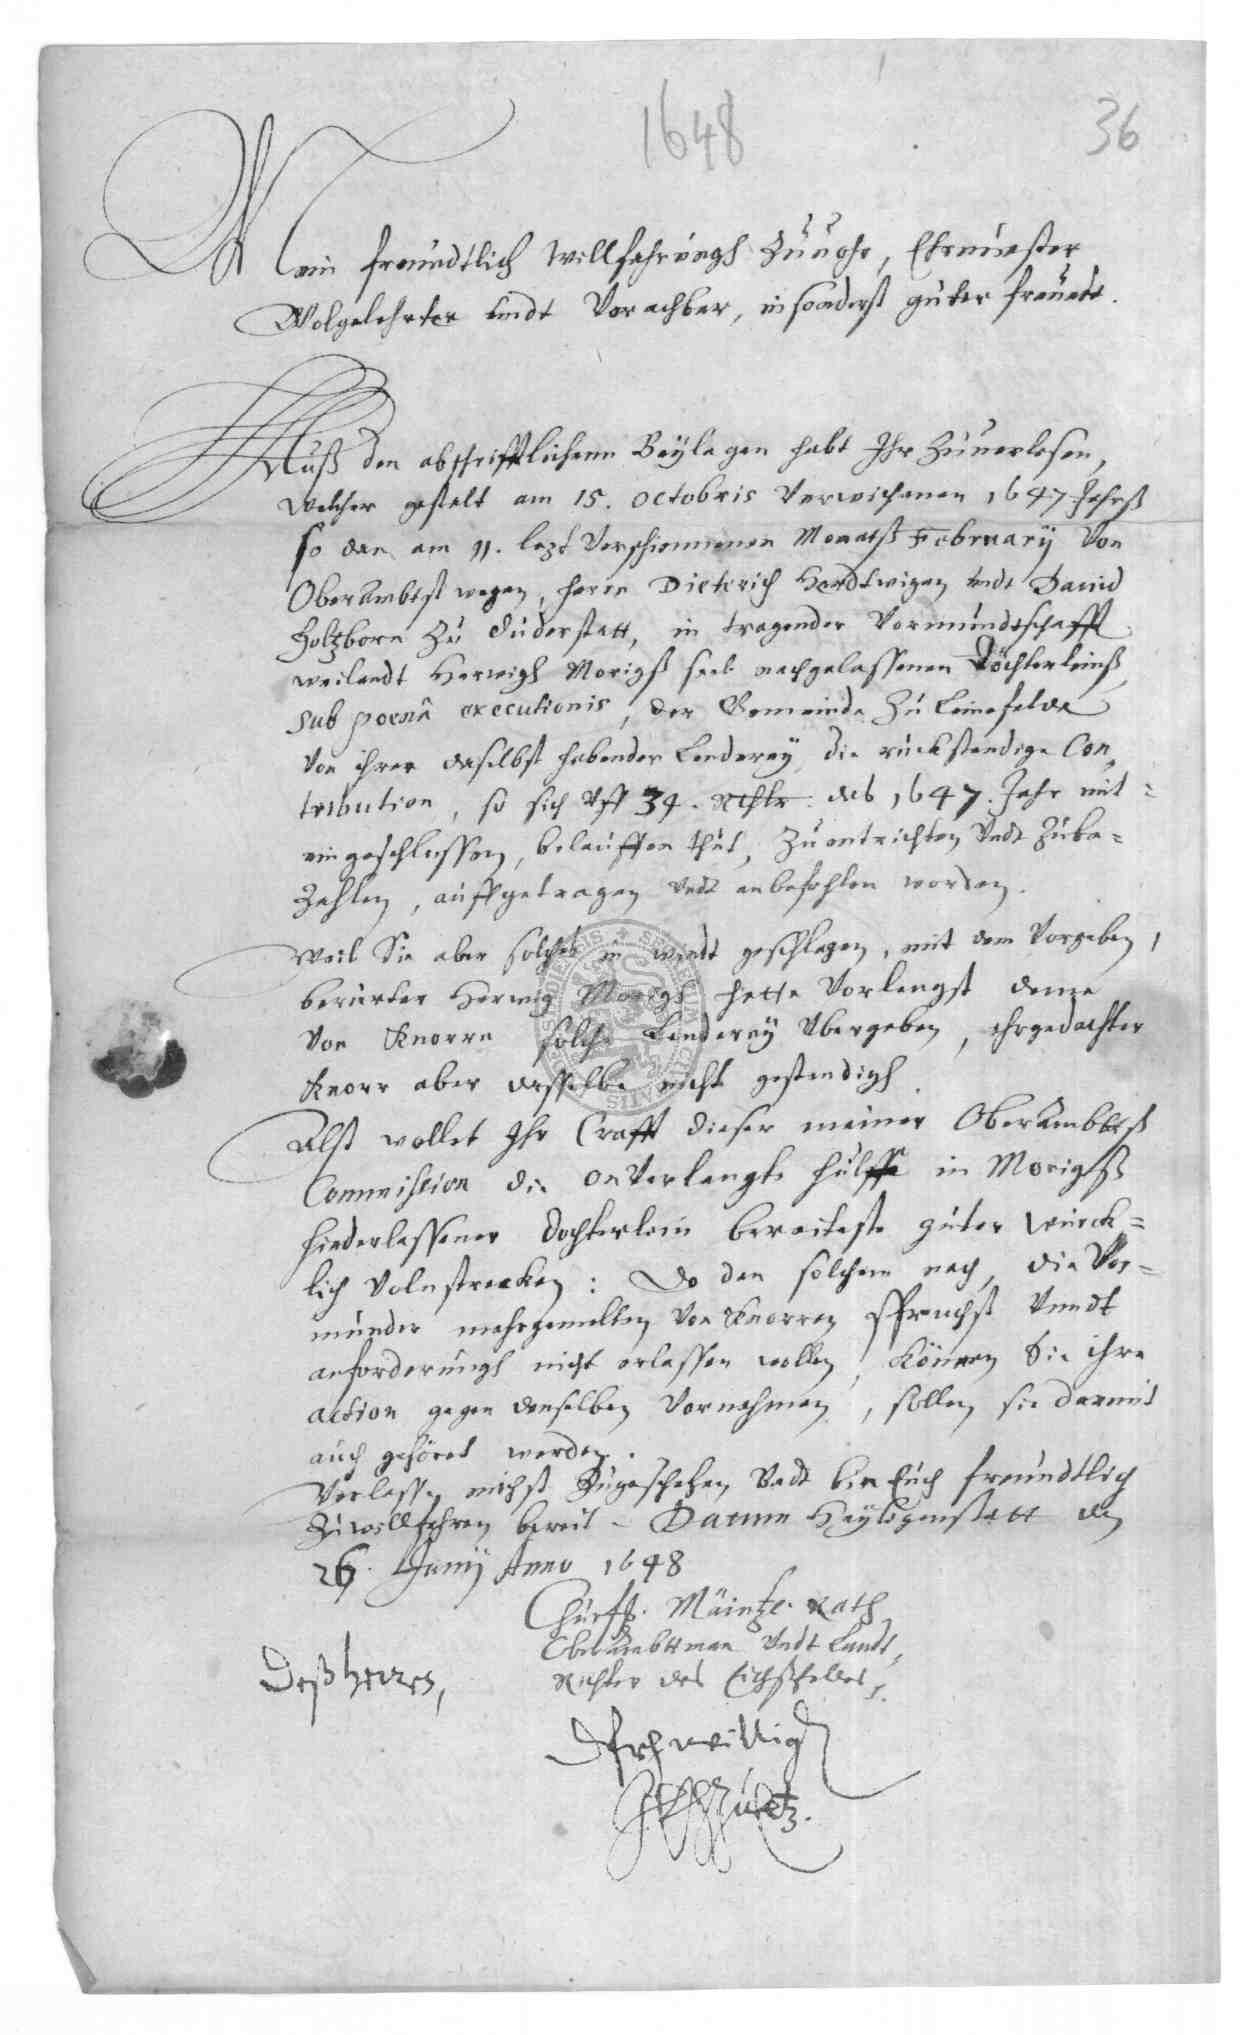 1648
36
Mein freundtlich willfahrungh Zuuohr, Ehrnuester
Wolgelehrter undt Vorachbar, insonderst guter freundt.
Auß den abschrifftlichenn Beylagen habt Ihr Zuuerlesen,
welcher gestalt am 15. octobris Verwichenen 1647 Jahrß
so dan am 11. lezt Verschienenen Monatß February Von
Oberambtß wegen, herrn Dieterich Herdtwigen undt David
Holtzborn Zu Duderstatt, in tragender Vormundtschafft
weilandt Herwigh Morigß seel. nachgelassenen Töchterleinß
sub poenâ executionis, der Gemeinde Zu Leinefelde
Von ihrer daselbst habender Lenderey die rückstendige Con,
tribution, so sich Uff 34. Rthlr. das 1647. Jahr mit=
eingeschlossen, belauffen thut, Zu entrichten Undt Zube=
Zahlen, auffgetragen Undt anbefohlen worden.
Weil Sie aber solches in windt geschlagen, mit dem Vorgeben,
berürter Herwig Morigh hette Vorlengst deme
Von Knorrn solche Lenderey Ubergeben, ehrgedachter
Knorr aber desselben nicht gestendigh
Alß wollet Ihr Crafft dieser meiner Oberambtß
Commission die onVerlangte hülffe in Morigß
hinderlassener dochterlein bereiteste guter würck=
lich Volnstrecken: Do dan solchem nach, die Vor=
münder mehrgemelten Von Knorren spruchß Unndt
anforderungh nicht erlassen wollen, können Sie ihre
action gegen denselben Vornehmen, sollen sie darmit
auch gehöret werden.
Verlasse michß Zugeschehen, Undt bin Euch freundtlich
Zu willfahren bereit. Datum Heyligenstatt den
26. Junij Anno 1648
Churfß. Mäintz. Rath,
Oberambttman Undt Landt,
Richter des Eichßfeldes,
Deß Herren,